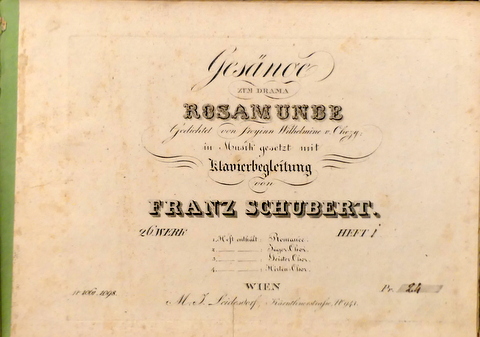 Gesänge
ZUM DRAMA
ROSAMUNDE
Gedichtet von Freyinn Wilhelmine v. Chezy,
in Musik gesetzt mit
Klavierbegleitung
von
FRANZ SCHUBERT.
26 WERK HEFT 1
1. Heft enthält: Romanze.
2. Jäger Chor.
3. Geister Chor.
4. Hirten Chor.
WIEN
M. J. Leidesdorf, Kärnthnerstrasse, No 941.
Pr. 24